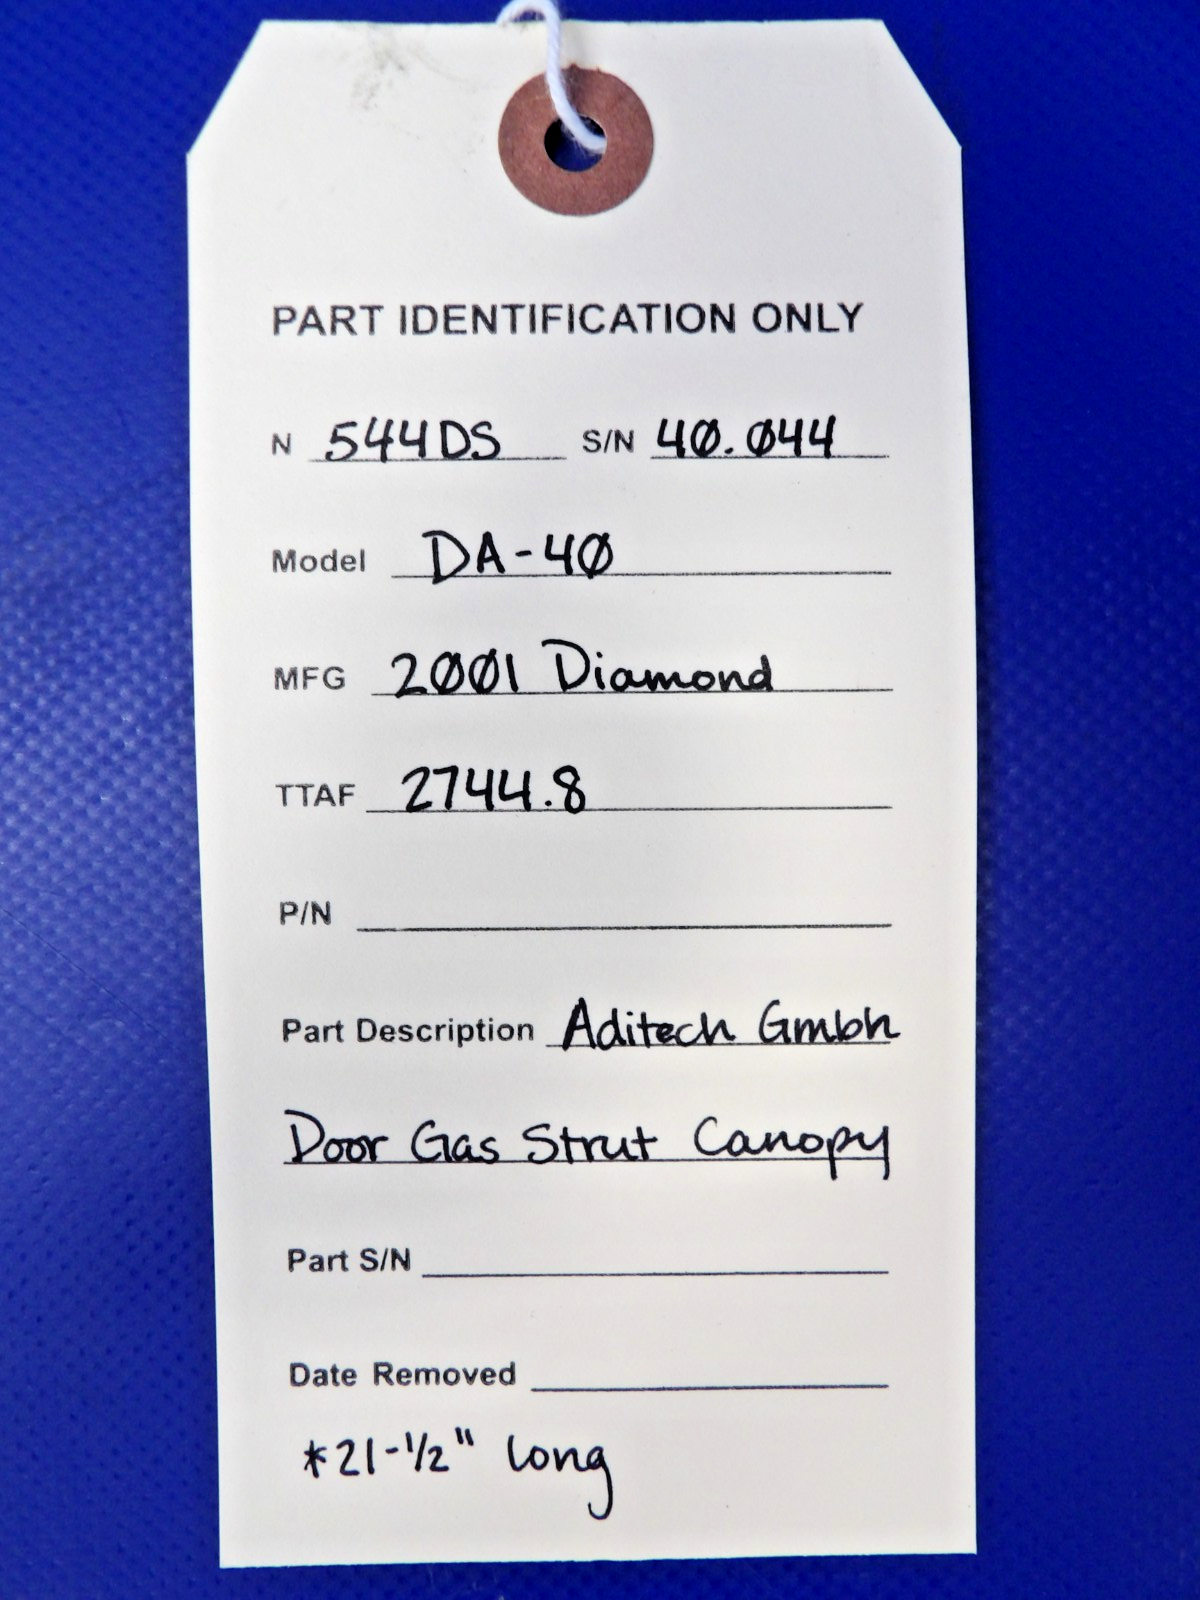 PART IDENTIFICATION ONLY
N 544DS S/N 40.044
Model DA-40
MFG 2001 Diamond
TTAF 2744.8
P/N
Part Description Aditech Gmbh
Door Gas Strut Canopy
Part S/N
Date Removed
*21-1/2" long